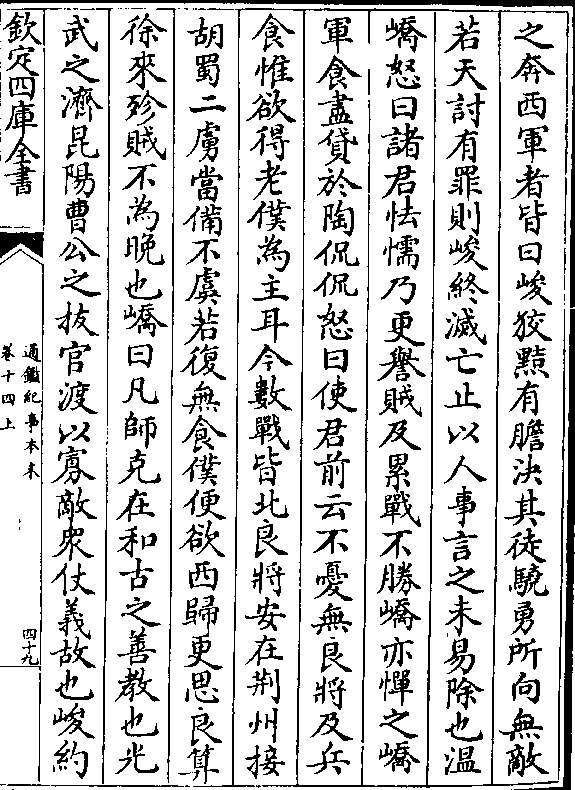 之奔西軍者皆曰峻狡黠有膽決其徒驍勇所向無敵
若天討有罪則峻終滅亡止以人事言之未易除也溫
嶠怒曰諸君怯懦乃更譽賊及累戰不勝嶠亦憚之嶠
軍食盡貸於陶侃侃怒曰使君前云不憂無良將及兵
食惟欲得老僕為主耳今數戰皆北良將安在荆州接
胡蜀二虜當備不虞若復無食僕便欲西歸更思良算
徐來殄賊不為晚也嶠曰凡師克在和古之善教也光
武之濟昆陽曹公之拔官渡以寡敵衆仗義故也峻約
欽定四庫全書
通鑑紀事本末
卷十四上
四十九